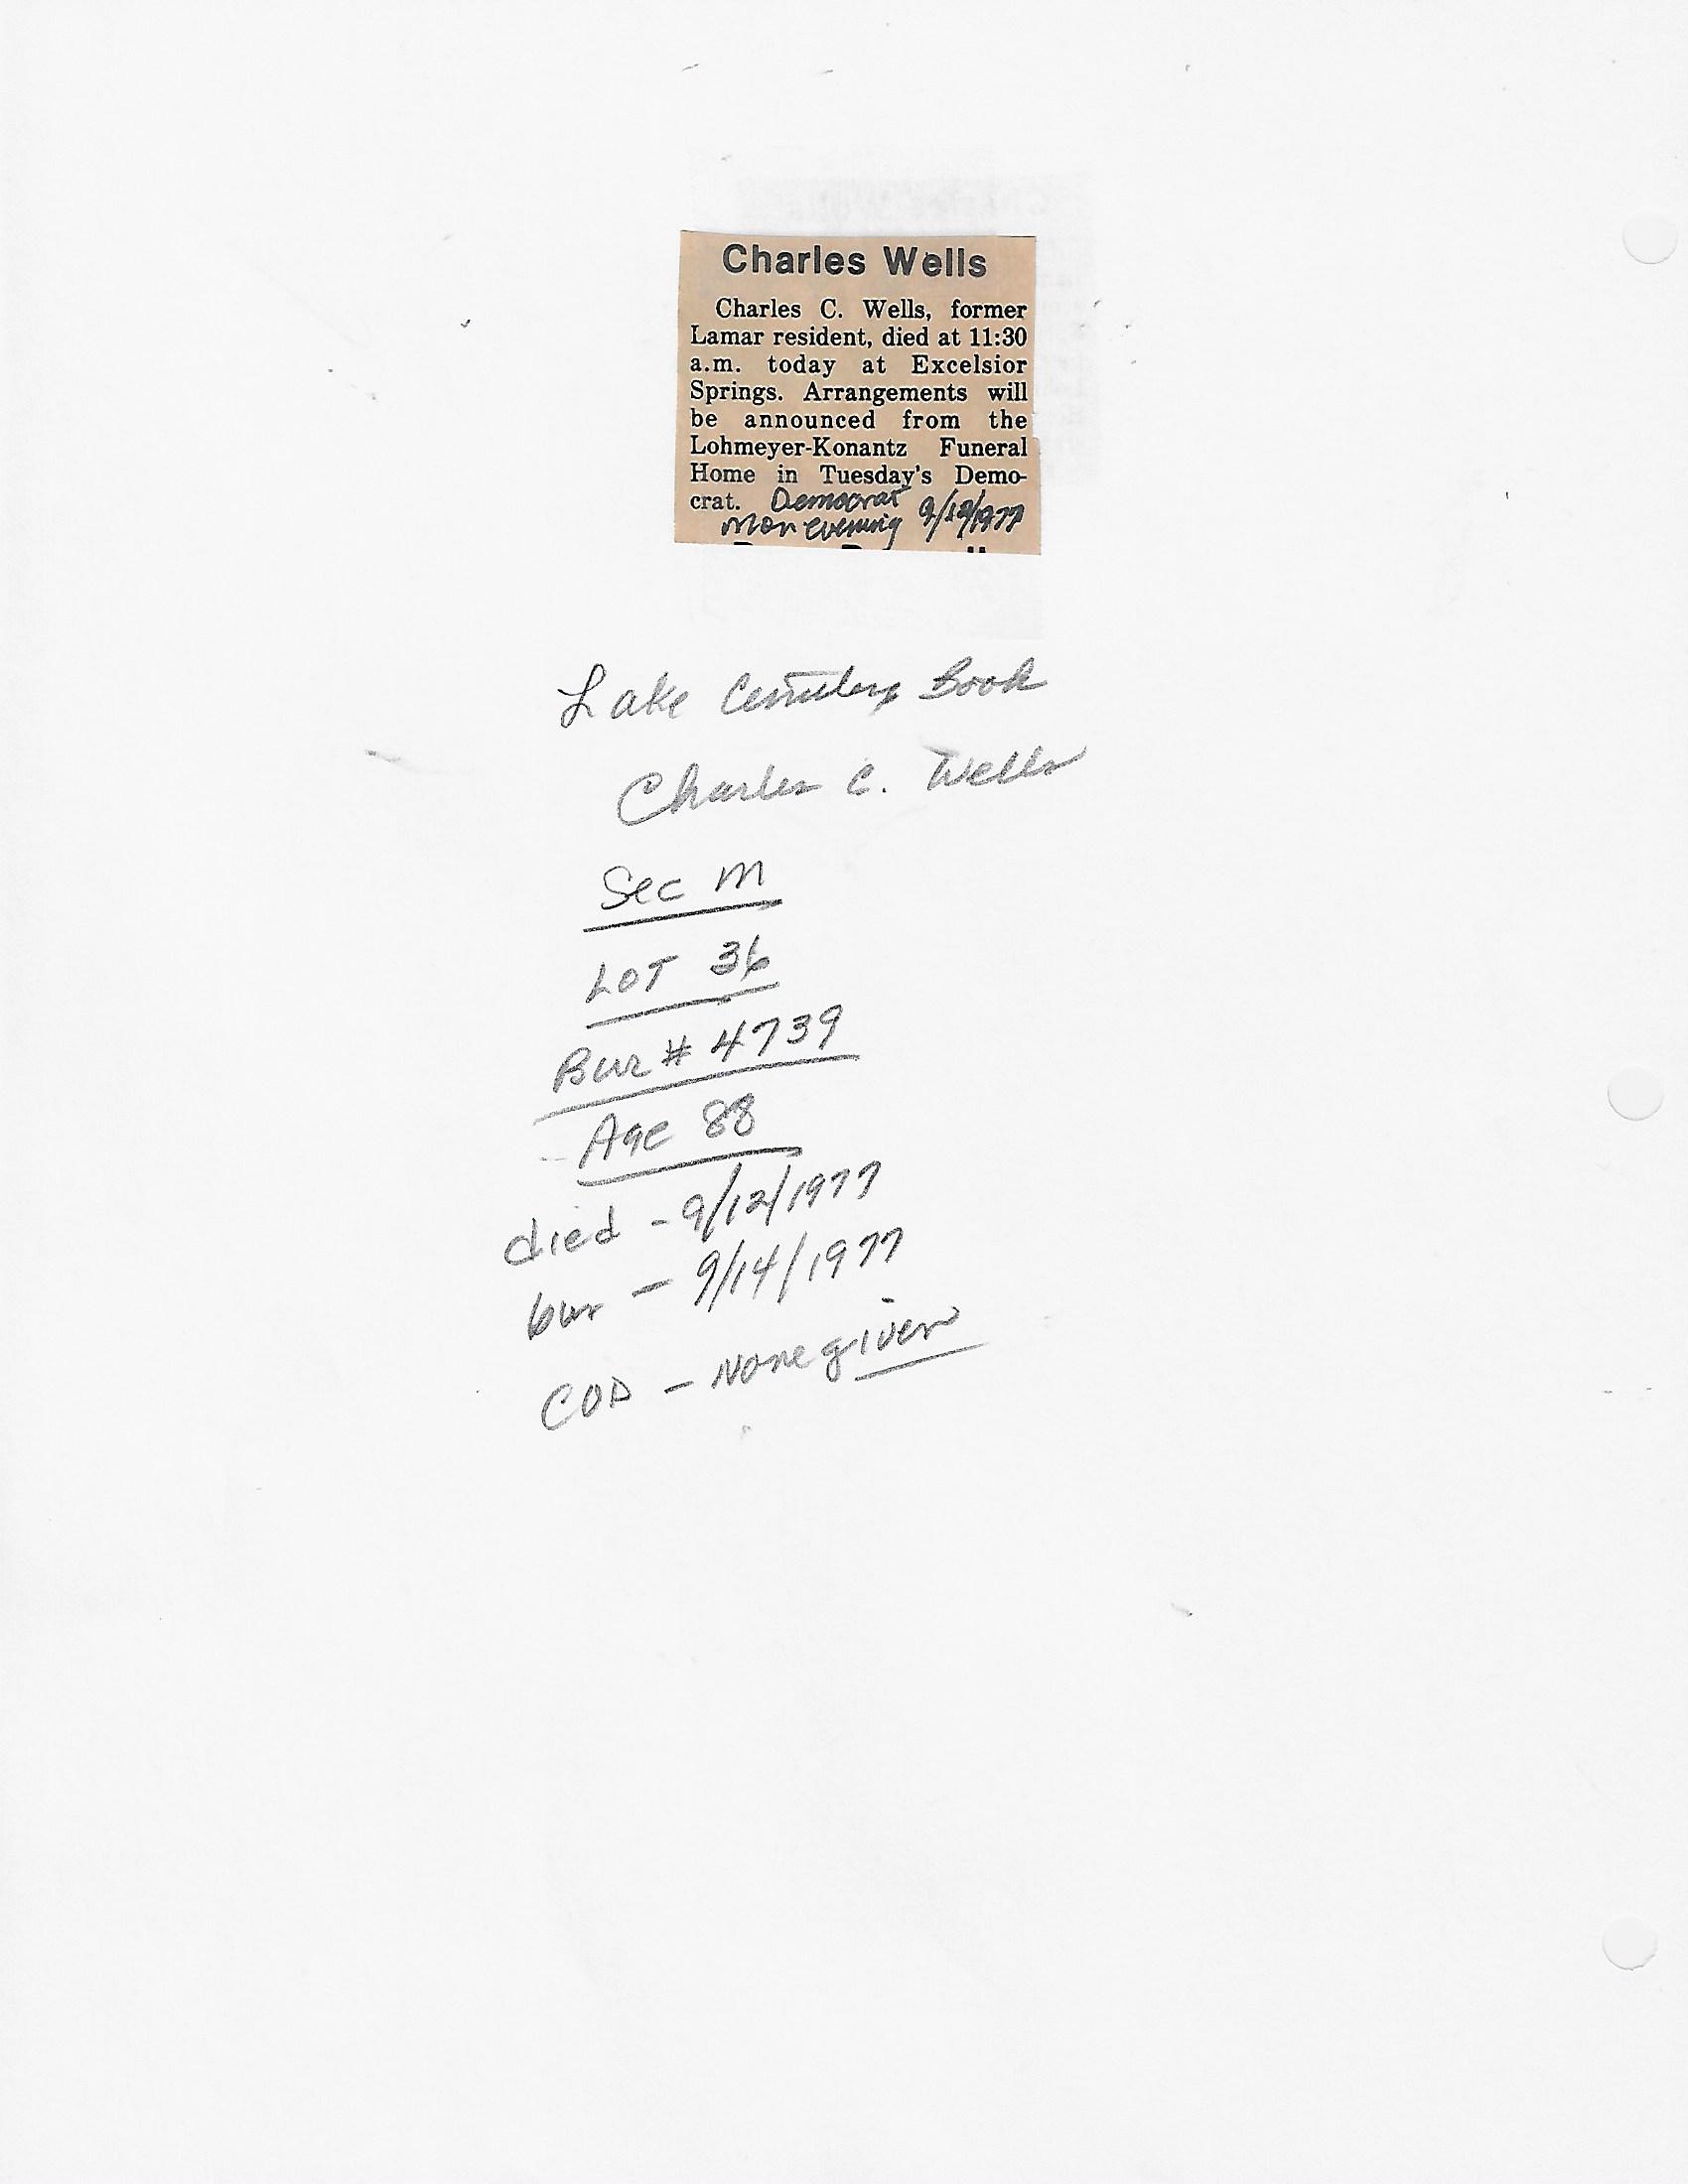 Charles Wells
Charles C. Wells, former
Lamar resident, died at 11:30
a.m. today at Excelsior
Springs. Arrangements will
be announced from the
Lohmeyer-Konantz Funeral
Home in Tuesday's Demo-
crat. Democrat
Mon evening 9/12/1977
Lake Cemetery Book
Charles C. Wells
Sec M
LOT 36
Bur # 4739
Age 88
died - 9/12/1977
bur - 9/14/1977
COD - None given